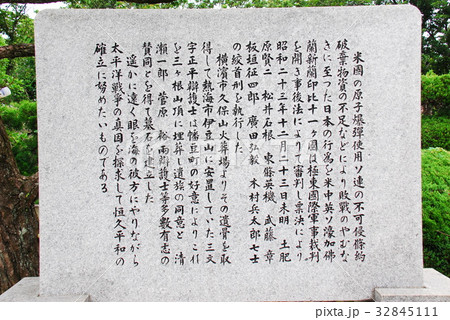 米國の原子爆彈使用ソ連の不可侵條約
破棄物資の不足などにより敗戰のやむな
きに至つた日本の行為を米中英ソ濠加佛
蘭新蘭印比十一ヶ國は極東國際軍事裁判
を開き事後法によりて審判し票決により
昭和二十三年十二月二十三日未明 土肥
原賢二 松井石根 東條英機 武藤 章
板垣征四郎 廣田弘毅 木村兵太郎七士
の絞首刑を執行した
横濱市久保山火葬場よりその遺骨を取
得して熱海市伊豆山に安置していた三文
字正平辯護士は幡豆町の好意によりこれ
を三ヶ根山頂に埋葬し遺族の同意と 清
瀬一郎 菅原 裕両辯護士等多數有志の
賛同とを得て墓石を建立した
遥かに遠く眼を海の彼方にやりながら
太平洋戰爭の真因を探求して恒久平和の
確立に努めたいものである
pixta.jp - 32845111